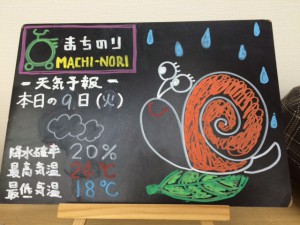 まちのり
MACHI-NORI
－天気予報－
本日の9日(火)
降水確率 20%
最高気温 26℃
最低気温 18℃